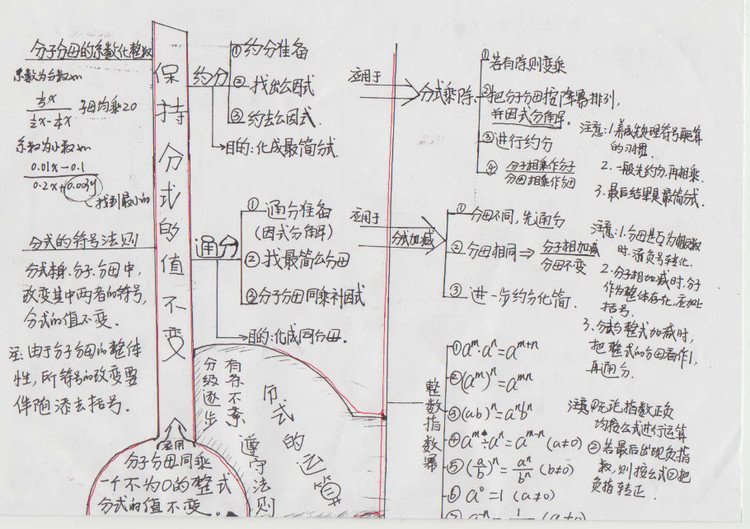 分子分母的系数化整数
系数为分数时
½x
½x-¼x
子母均乘20
系数为小数时
0.01x-0.1
0.2x+0.003y
找到最小的
分式的符号法则
分式本身、分子、分母中,
改变其中两者的符号,
分式的值不变。
注:由于分子分母的整体
性,所符号的改变要
伴随添去括号。
保持分式的值不变
应用
分子分母同乘
一个不为0的整式
分式的值不变
约分
①约分准备
②找出公因式
③约去公因式
目的:化成最简分式.
通分
①通分准备
(因式分解)
②找最简公分母
③分子分母同乘补因式
目的:化成同分母.
分级逐步
有条不紊
遵守法则
分式的运算
应用于
分式乘除
①若有除则变乘
②把分子分母按降幂排列,
并因式分解.
③进行约分
④分子相乘作分子
分母相乘作分母
注意:1.养成先处理符号再运算
的习惯.
2.一般先约分,再相乘.
3.最后结果是最简分式.
应用于
分式加减
①分母不同,先通分
②分母相同⇒分子相加减
分母不变
③进一步约分化简.
注意:1.分母是互为相反数
时,添负号转化.
2.分子相加减时,分子
作为整体存在,应加上
括号.
3.分式与整式加减时,
把整式的分母看作1,
再通分.
整数指数幂
①aᵐ·aⁿ=aᵐ⁺ⁿ
②(aᵐ)ⁿ=aᵐⁿ
③(ab)ⁿ=aⁿbⁿ
④aᵐ÷aⁿ=aᵐ⁻ⁿ (a≠0)
⑤(a/b)ⁿ=aⁿ/bⁿ (b≠0)
⑥a⁰=1 (a≠0)
⑦a⁻ⁿ=1/aⁿ (a≠0)
注意:①无论指数正负
均按公式进行运算
②若最后出现负指
数,则按公式⑦把
负指转正.